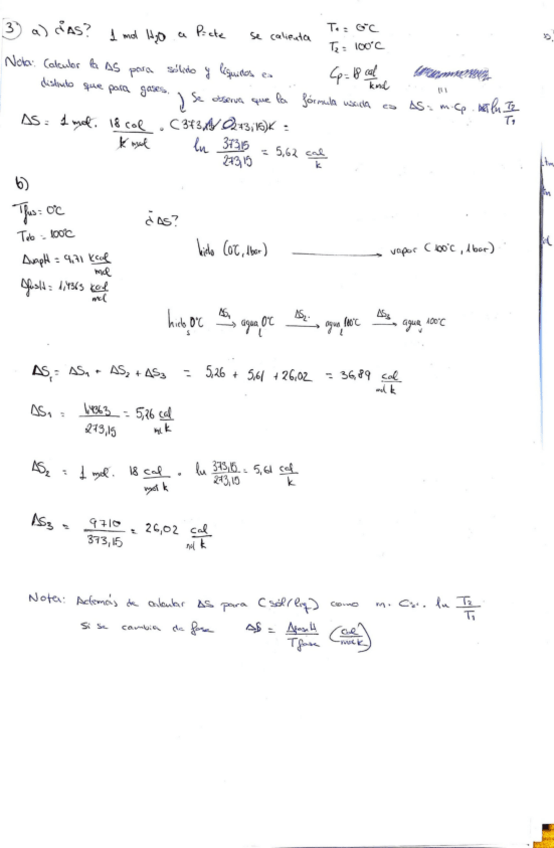 3) a) ¿ΔS? 1 mol H2O a P=cte se calienta T1 = 0°C
T2 = 100°C
Cp = 18 cal/k mol
Nota: Calcular la ΔS para sólido y líquidos es
distinto que para gases. Se observa que la fórmula usada es ΔS = m · Cp · ln T2/T1
ΔS = 1 mol · 18 cal/k mol · (373,15 273,15)k =
ln 373,15/273,15 = 5,62 cal/k
b)
Tfus = 0°C ¿ΔS?
Teb = 100°C
ΔvapH = 9,71 kcal/mol
ΔfusH = 1,4363 kcal/mol
hielo (0°C, 1bar) → vapor (100°C, 1bar)
hielo 0°C ΔS1→ agua 0°C ΔS2→ agua 100°C ΔS3→ agua 100°C
ΔS = ΔS1 + ΔS2 + ΔS3 = 5,26 + 5,61 + 26,02 = 36,89 cal/mol k
ΔS1 = 1436,3/273,15 = 5,26 cal/mol k
ΔS2 = 1 mol · 18 cal/mol k · ln 373,15/273,15 = 5,61 cal/k
ΔS3 = 9710/373,15 = 26,02 cal/mol k
Nota: Además de calcular ΔS para (sól/líq) como m · · ln T2/T1
Si se cambia de fase ΔS = ΔfaseH/Tfase (cal/mol k)